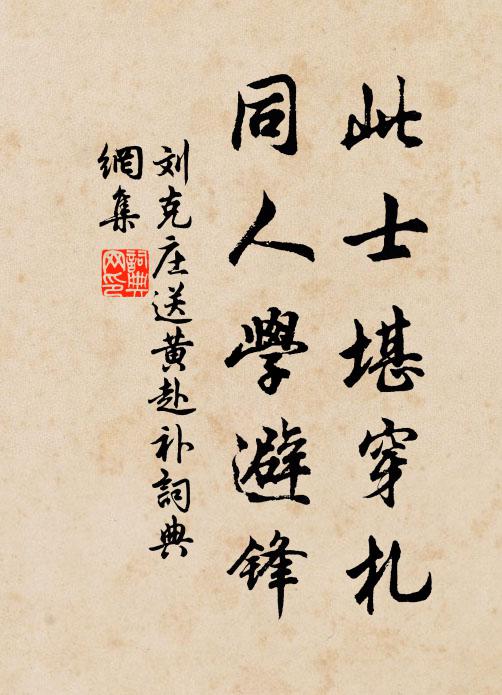 此士堪穿札
同人學避锋
刘克庄送黄赴补詞典
網集
詞典
网印